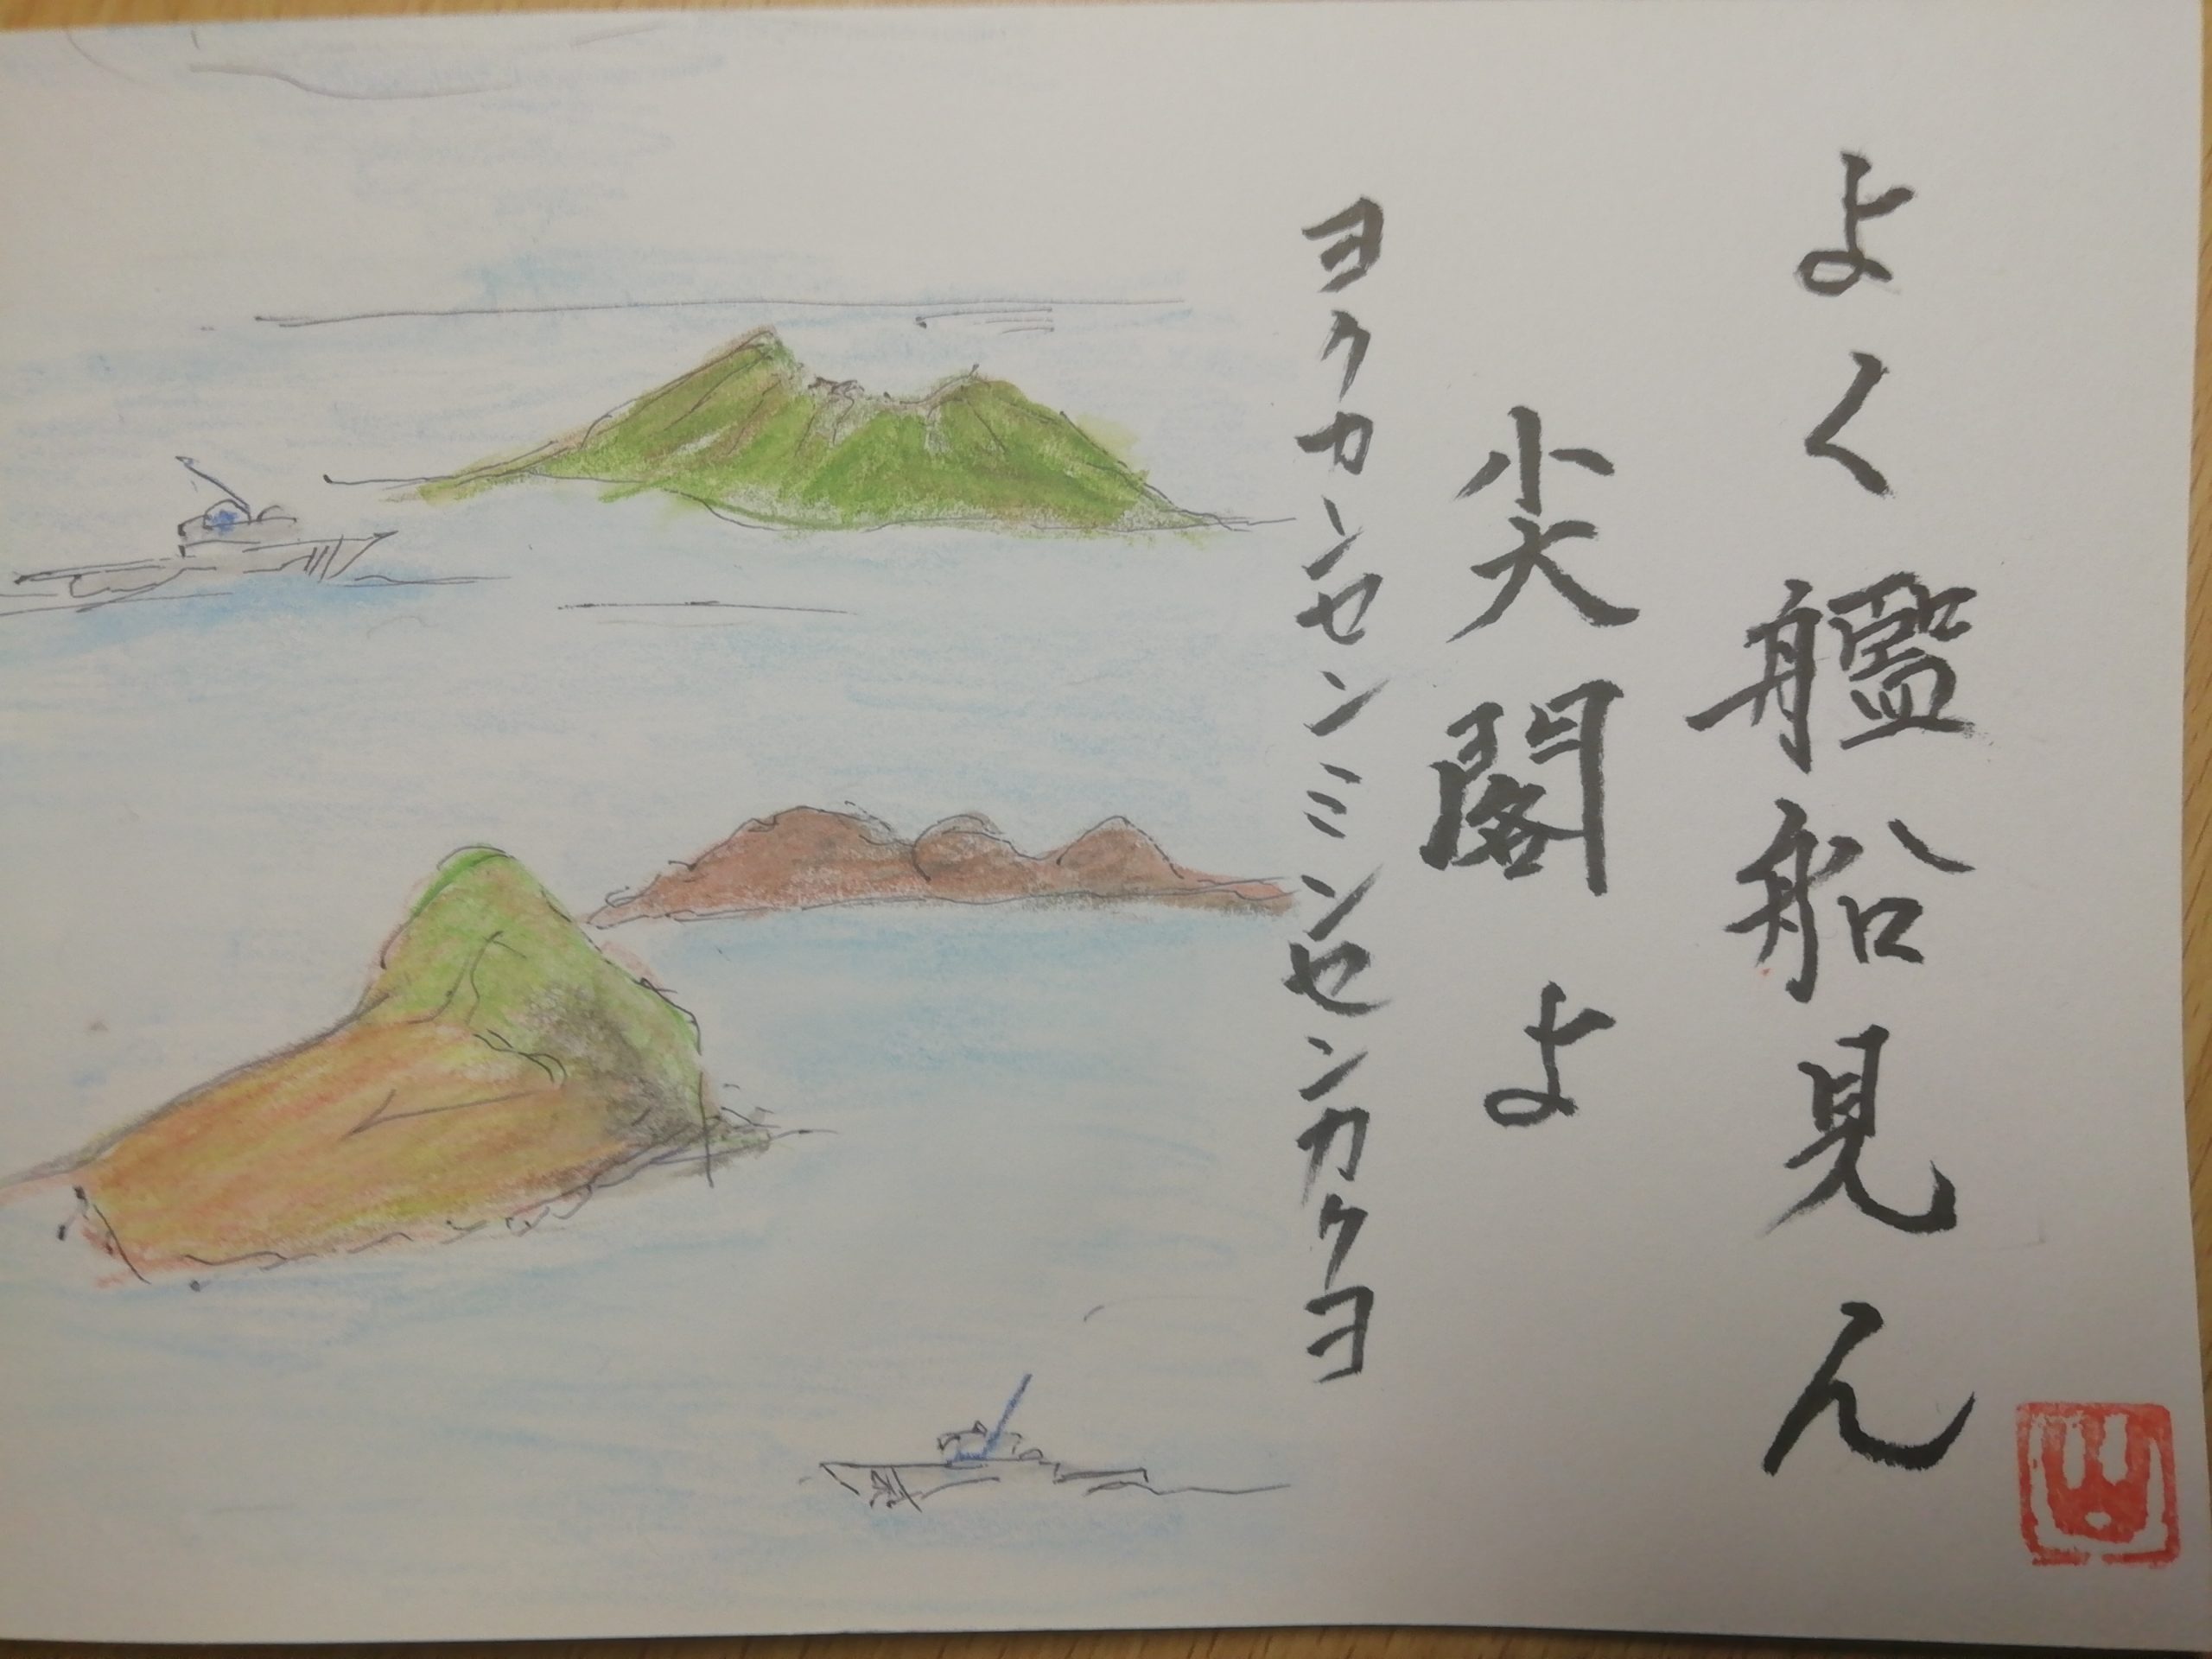 よく艦船見ん
尖閣よ
ヨクカンセンミンセンカクヨ